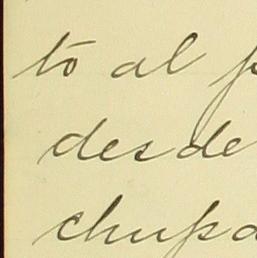 to al
desde
chupa